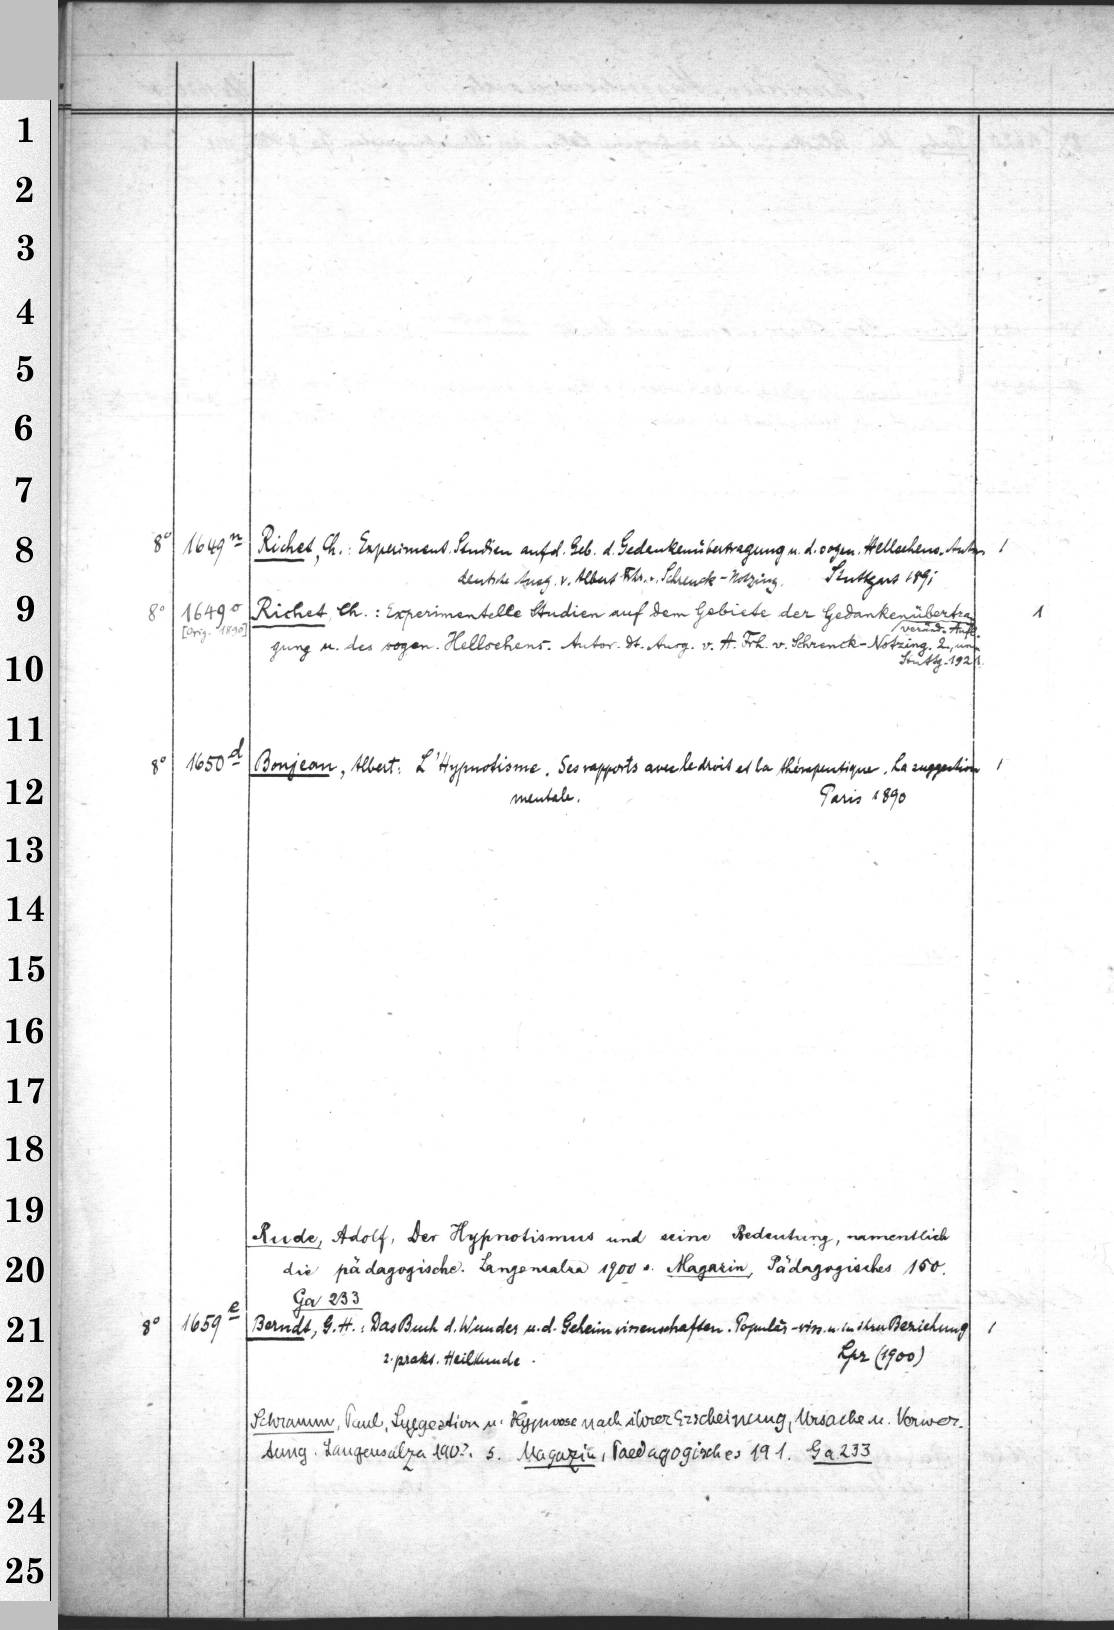 1
2
3
4
5
6
7
8
9
10
11
12
13
14
15
16
17
18
19
20
21
22
23
24
25
8° 1649 n Richet, Ch.: Experiment. Studien auf d. Geb. d. Gedankenübertragung u. d. sogen. Hellsehens. Autor. 1
deutsche Ausg. v. Albert Frhr. v. Schrenck-Notzing. Stuttgart 1891
8° 1649 o Richet, Ch.: Experimentelle Studien auf dem Gebiete der Gedankenübertra- 1
[Orig. 1890] veränd. Aufl.
gung u. des sogen. Hellsehens. Autor. dt. Ausg. v. A. Frh. v. Schrenck-Notzing. 2., un
Stuttg. 1921.
8° 1650 d Bonjean, Albert: L'Hypnotisme. Ses rapports avec le droit et la thérapeutique. La suggestion 1
mentale. Paris 1890
Rude, Adolf, Der Hypnotismus und seine Bedeutung, namentlich
die pädagogische. Langensalza 1900 s. Magazin, Pädagogisches 150.
Ga 233
8° 1659 e Berndt, G. H.: Das Buch d. Wunder u. d. Geheimwissenschaften. Populär-wiss. u. in ihrer Beziehung 1
z. prakt. Heilkunde. Lpz (1900)
Schramm, Paul, Suggestion u. Hypnose nach ihrer Erscheinung, Ursache u. Verwer-
tung. Langensalza 190?. s. Magazin, Paedagogisches 191. Ga 233